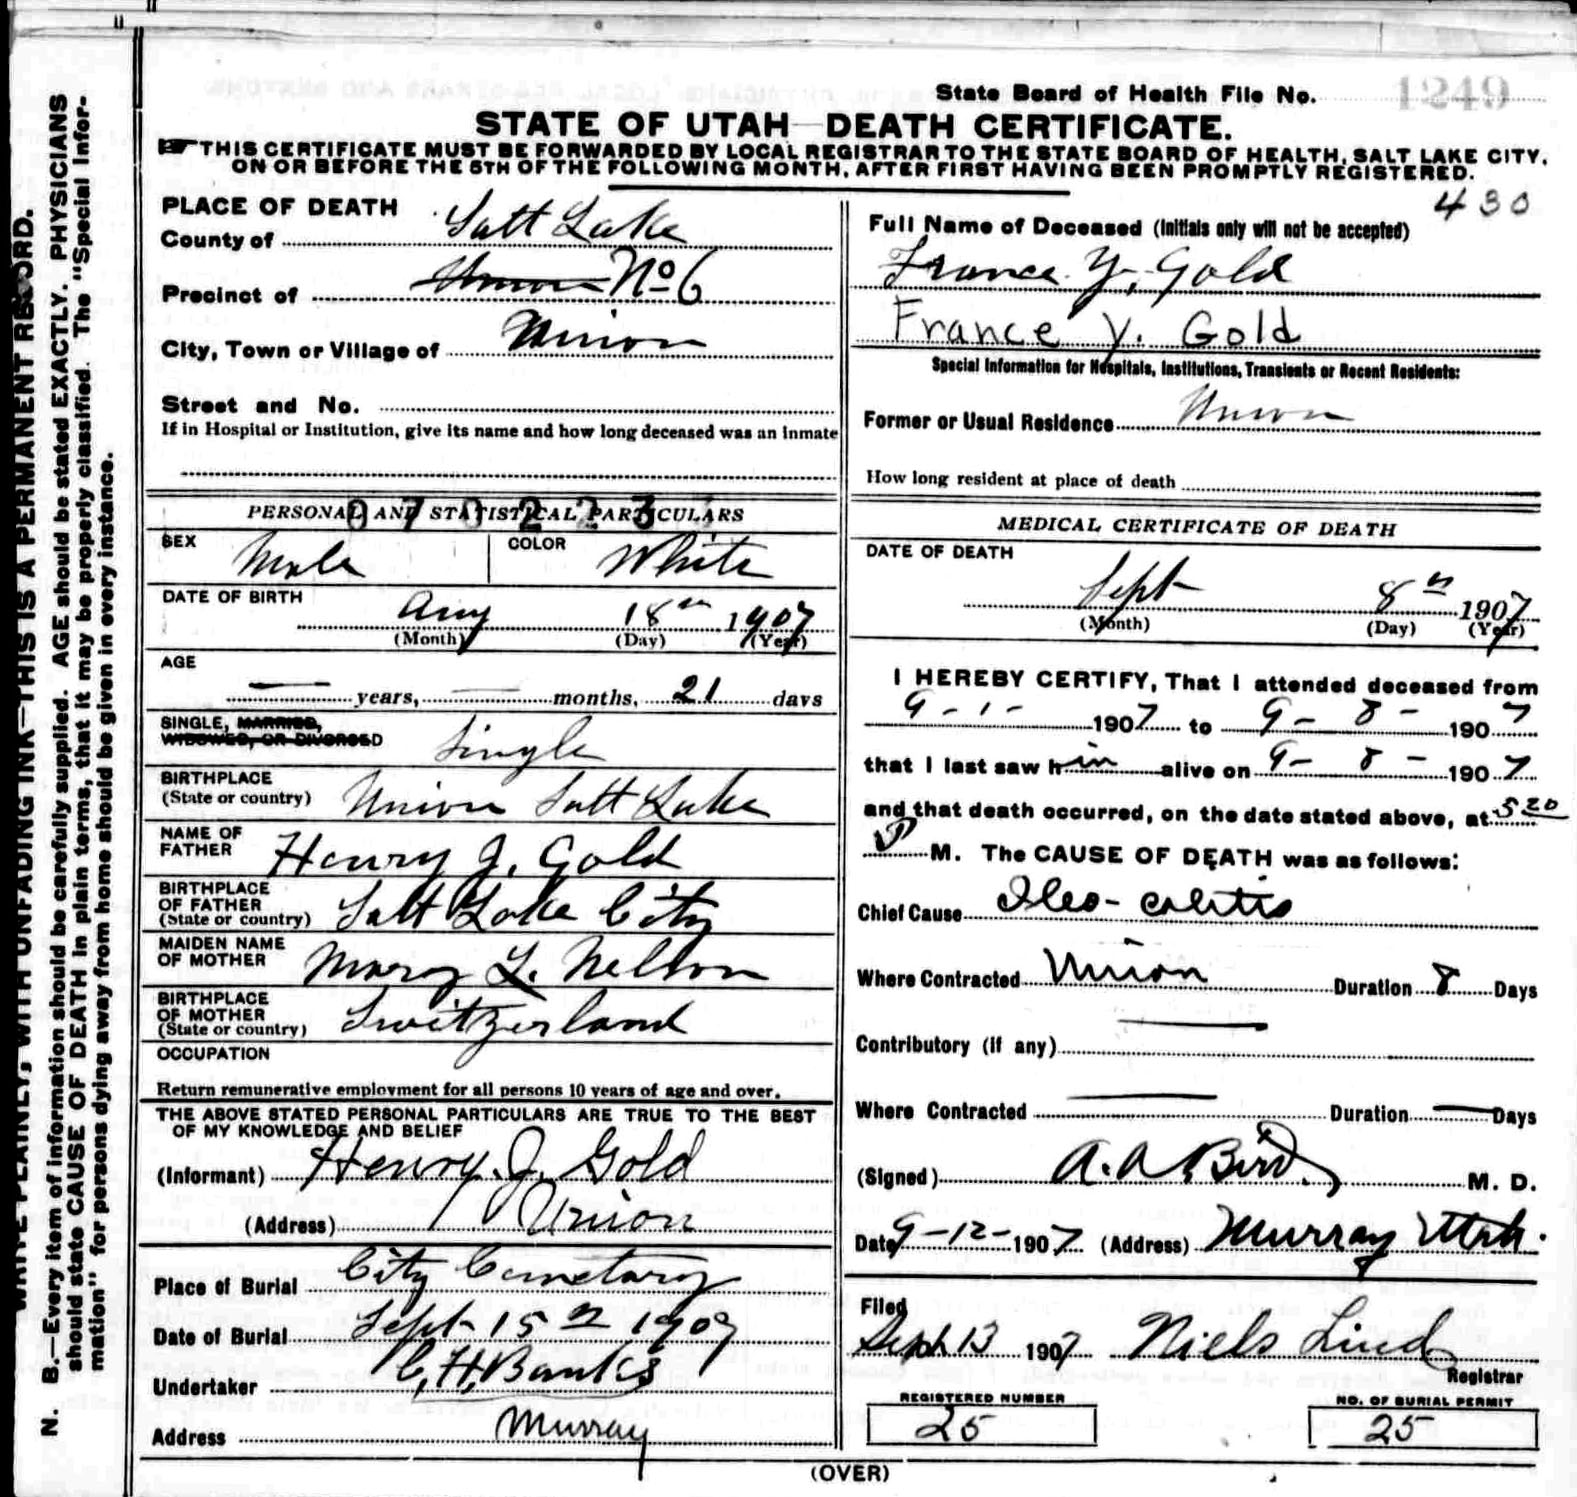 State Board of Health File No. 1249
STATE OF UTAH—DEATH CERTIFICATE.
THIS CERTIFICATE MUST BE FORWARDED BY LOCAL REGISTRAR TO THE STATE BOARD OF HEALTH, SALT LAKE CITY,
ON OR BEFORE THE 5TH OF THE FOLLOWING MONTH, AFTER FIRST HAVING BEEN PROMPTLY REGISTERED.
WRITE PLAINLY, WITH UNFADING INK—THIS IS A PERMANENT RECORD.
N. B.—Every item of information should be carefully supplied. AGE should be stated EXACTLY. PHYSICIANS
should state CAUSE OF DEATH in plain terms, that it may be properly classified. The "Special Infor-
mation" for persons dying away from home should be given in every instance.
PLACE OF DEATH
County of Salt Lake
Precinct of Union No 6
City, Town or Village of Union
Street and No.
If in Hospital or Institution, give its name and how long deceased was an inmate
PERSONAL AND STATISTICAL PARTICULARS
SEX Male COLOR White
DATE OF BIRTH Aug 18th 1907
(Month) (Day) (Year)
AGE
— years, — months, 21 days
SINGLE, MARRIED,
WIDOWED, OR DIVORCED Single
BIRTHPLACE
(State or country) Union Salt Lake
NAME OF
FATHER Henry J. Gold
BIRTHPLACE
OF FATHER
(State or country) Salt Lake City
MAIDEN NAME
OF MOTHER Mary L. Nelson
BIRTHPLACE
OF MOTHER
(State or country) Switzerland
OCCUPATION
Return remunerative employment for all persons 10 years of age and over.
THE ABOVE STATED PERSONAL PARTICULARS ARE TRUE TO THE BEST
OF MY KNOWLEDGE AND BELIEF
(Informant) Henry J. Gold
(Address) Union
Place of Burial City Cemetary
Date of Burial Sept 15th 1907
Undertaker C. H. Banks
Address Murray
430
Full Name of Deceased (Initials only will not be accepted)
France Y. Gold
France Y. Gold
Special Information for Hospitals, Institutions, Transients or Recent Residents:
Former or Usual Residence Union
How long resident at place of death
MEDICAL CERTIFICATE OF DEATH
DATE OF DEATH
Sept 8th 1907
(Month) (Day) (Year)
I HEREBY CERTIFY, That I attended deceased from
9-1- 1907 to 9-8- 1907
that I last saw him alive on 9-8- 1907
and that death occurred, on the date stated above, at 5 20
P M. The CAUSE OF DEATH was as follows:
Chief Cause Ileo-colitis
Where Contracted Union Duration 8 Days
Contributory (if any) —
Where Contracted — Duration — Days
(Signed) A. A. Bird M. D.
Date 9-12-1907 (Address) Murray Utah.
Filed
Sept 13 1907 Niels Lind
Registrar
REGISTERED NUMBER
25
NO. OF BURIAL PERMIT
25
(OVER)